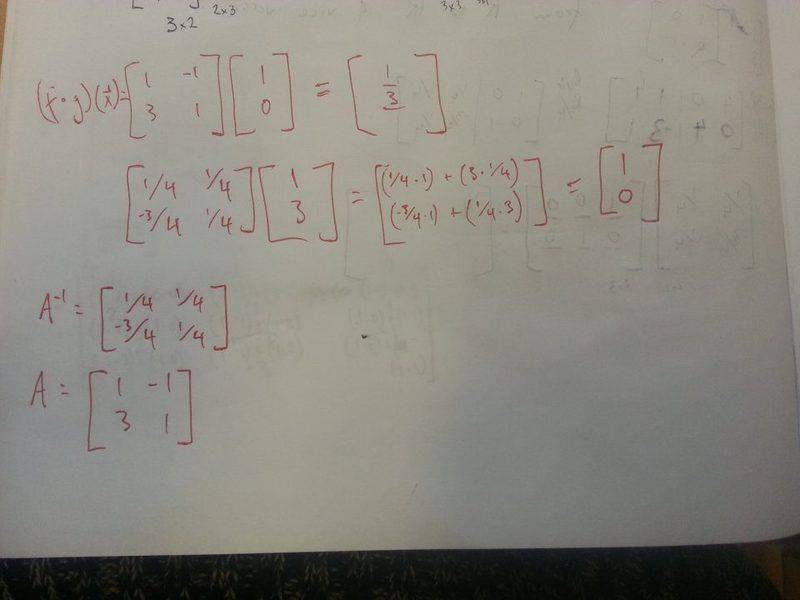 3×2 2×3 3×3
(f∘g)(x⃗) = [1 -1; 3 1] [1; 0] = [1; 3]
[1/4 1/4; -3/4 1/4] [1; 3] = [(1/4·1) + (3·1/4); (-3/4·1) + (1/4·3)] = [1; 0]
A⁻¹ = [1/4 1/4; -3/4 1/4]
A = [1 -1; 3 1]